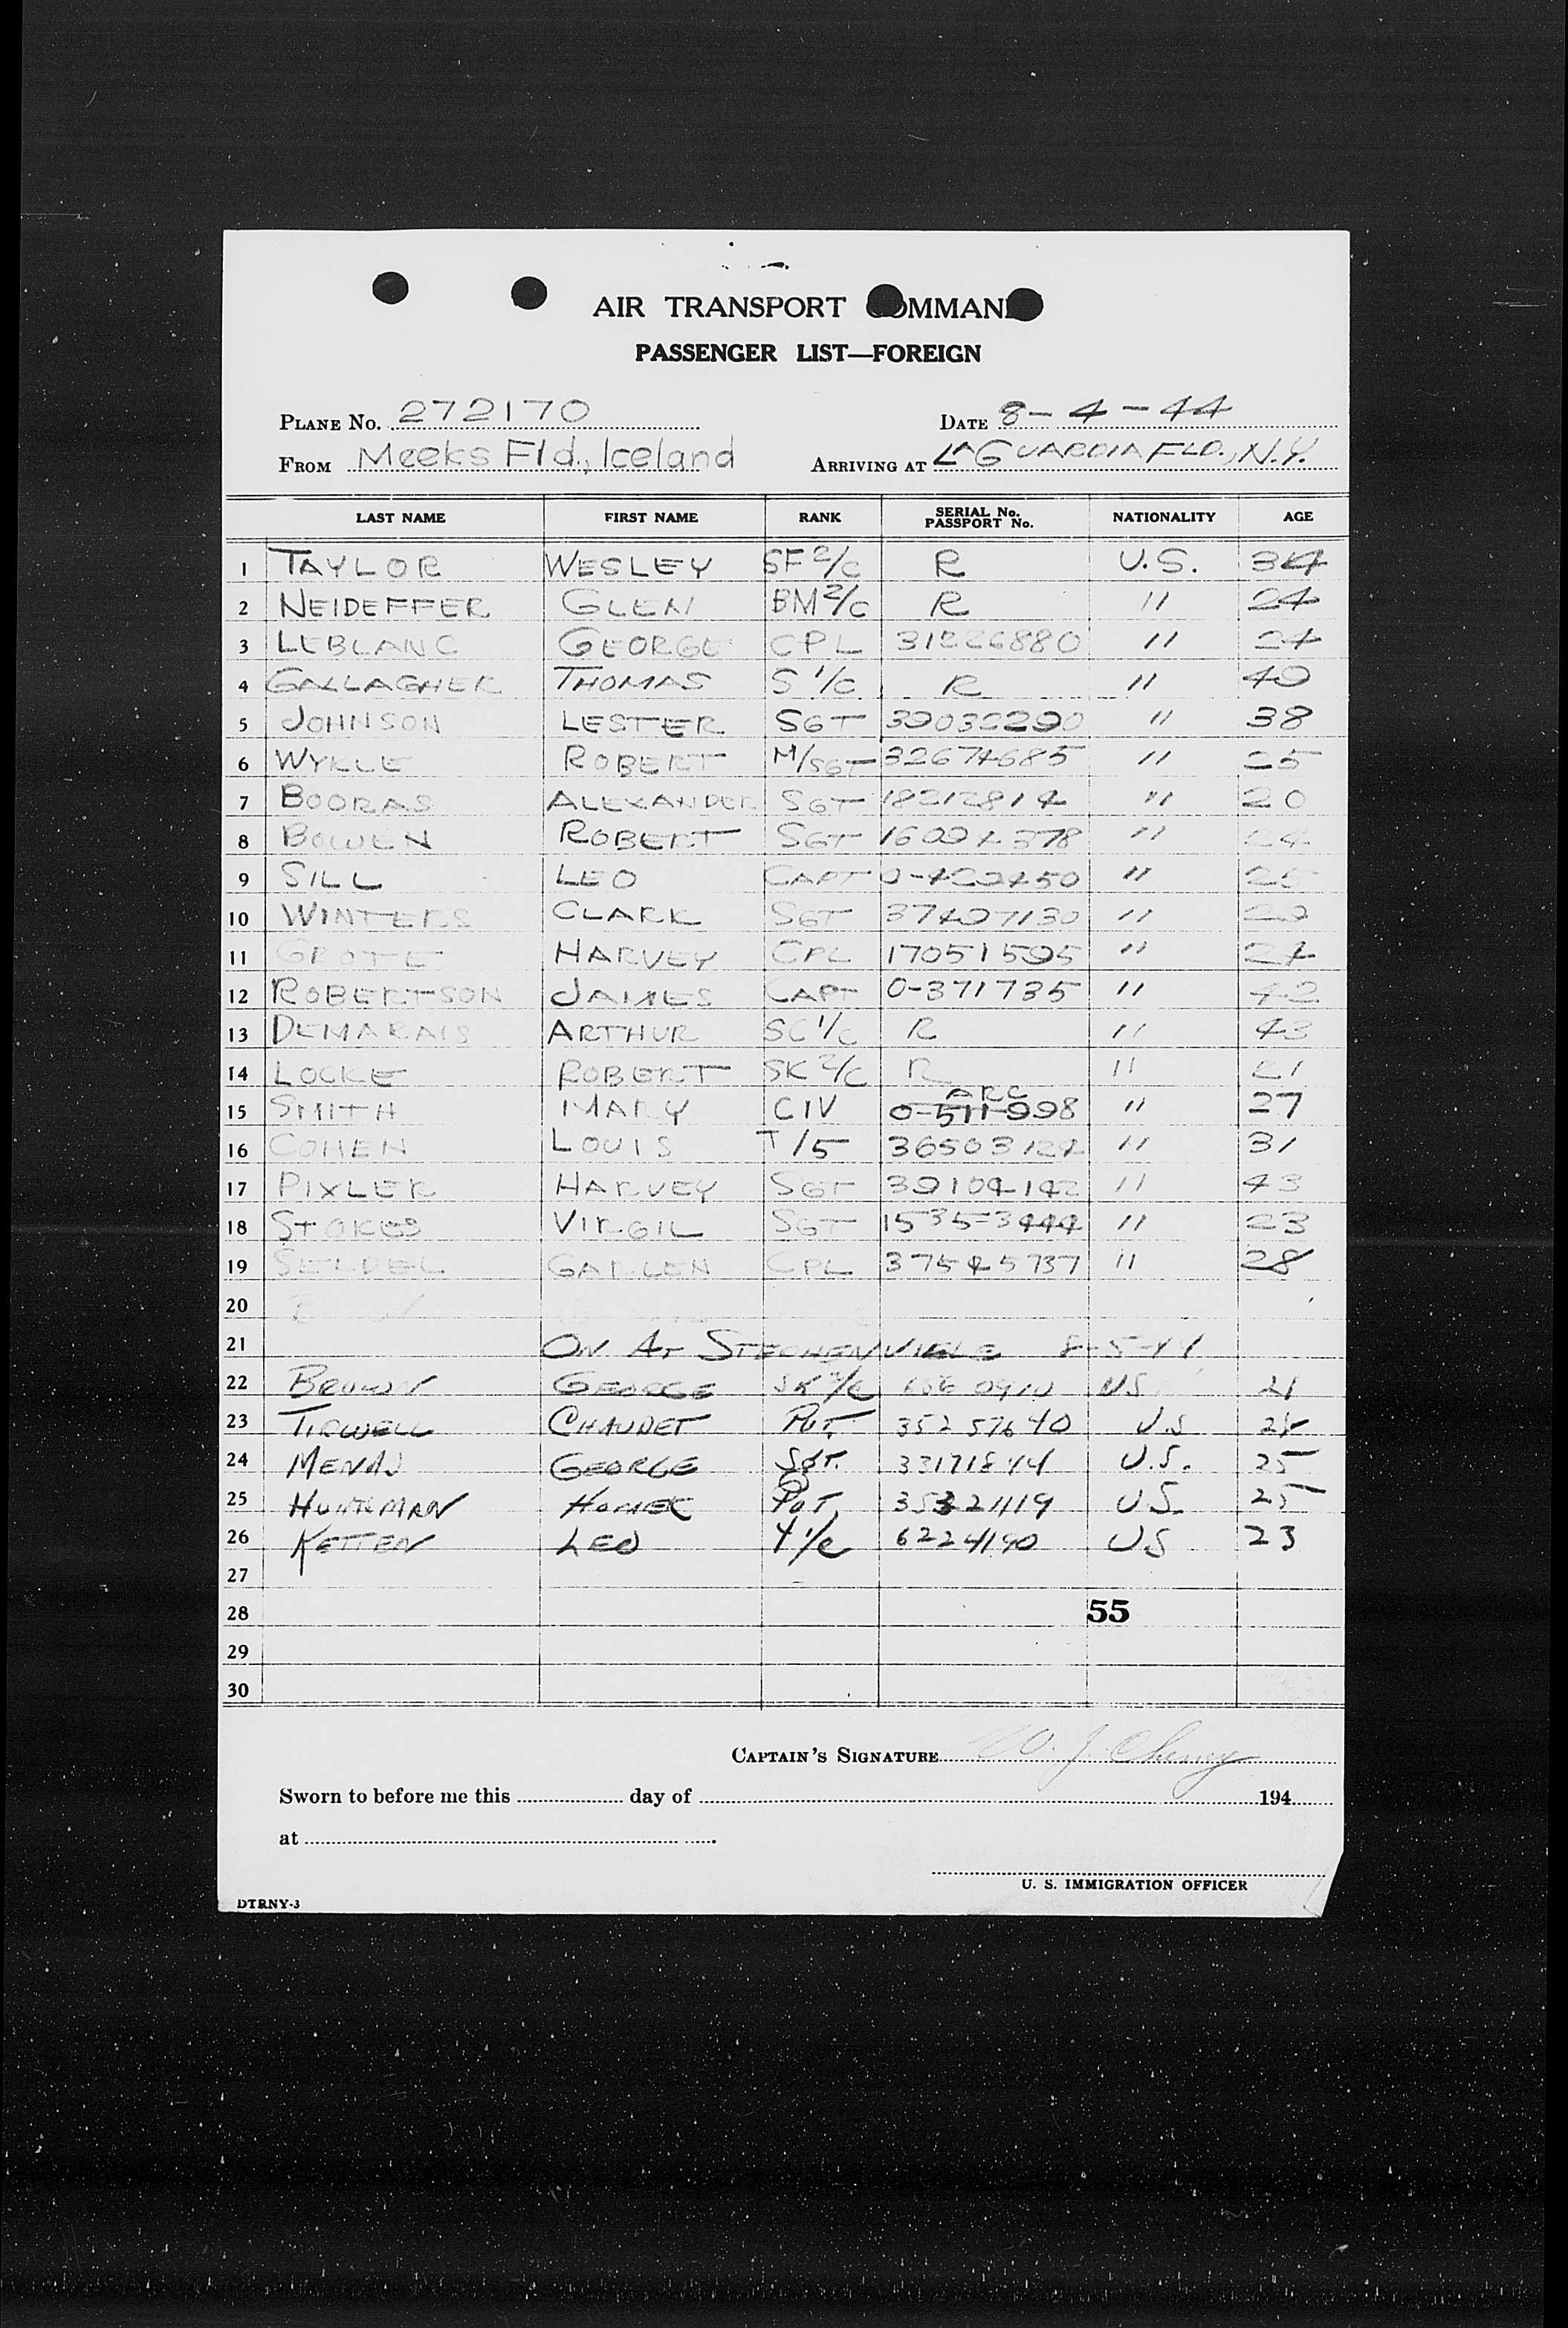 AIR TRANSPORT COMMAND
PASSENGER LIST—FOREIGN
PLANE No. 272170 DATE 8-4-44
FROM Meeks Fld., Iceland ARRIVING AT LAGUARDIA FLD., N.Y.
LAST NAME FIRST NAME RANK SERIAL No. PASSPORT No. NATIONALITY AGE
1 TAYLOR WESLEY SF 2/C R U.S. 34
2 NEIDEFFER GLEN BM 2/C R " 24
3 LEBLANC GEORGE CPL 31226880 " 24
4 GALLAGHER THOMAS S 1/C R " 40
5 JOHNSON LESTER SGT 39032290 " 38
6 WYLLE ROBERT M/SGT 32674685 " 25
7 BOORAS ALEXANDER SGT 18212814 " 20
8 BOWEN ROBERT SGT 16094378 " 24
9 SILL LEO CAPT 0-429450 "
10 WINTERS CLARK SGT 37497130 " 29
11 GROTE HARVEY CPL 17051595 " 24
12 ROBERTSON JAMES CAPT 0-371735 " 42
13 DEMARAIS ARTHUR SC 1/C R " 43
14 LOCKE ROBERT SK 2/C R " 21
15 SMITH MARY CIV ARC 0-511-998 " 27
16 COHEN LOUIS T/5 36503124 " 31
17 PIXLER HARVEY SGT 39104142 " 43
18 STOKES VIRGIL SGT 15353444 " 23
19 SEIDEL GARLEN CPL 37545737 " 28
20
21 ON AT STEPHENVILLE 8-5-44
22 BROWN GEORGE SK 2/C US 21
23 TIDWELL CHAUDET PVT. 35257640 U.S
24 GEORGE SGT. 33171844 U.S. 25
25 HUNTSMAN HOMER PVT 35321119 US. 25
26 KETTEN LEO Y 1/C 6224190 US 23
27
28 55
29
30
CAPTAIN'S SIGNATURE W. J. Cherny
Sworn to before me this day of 194
at
U. S. IMMIGRATION OFFICER
DTRNY-3